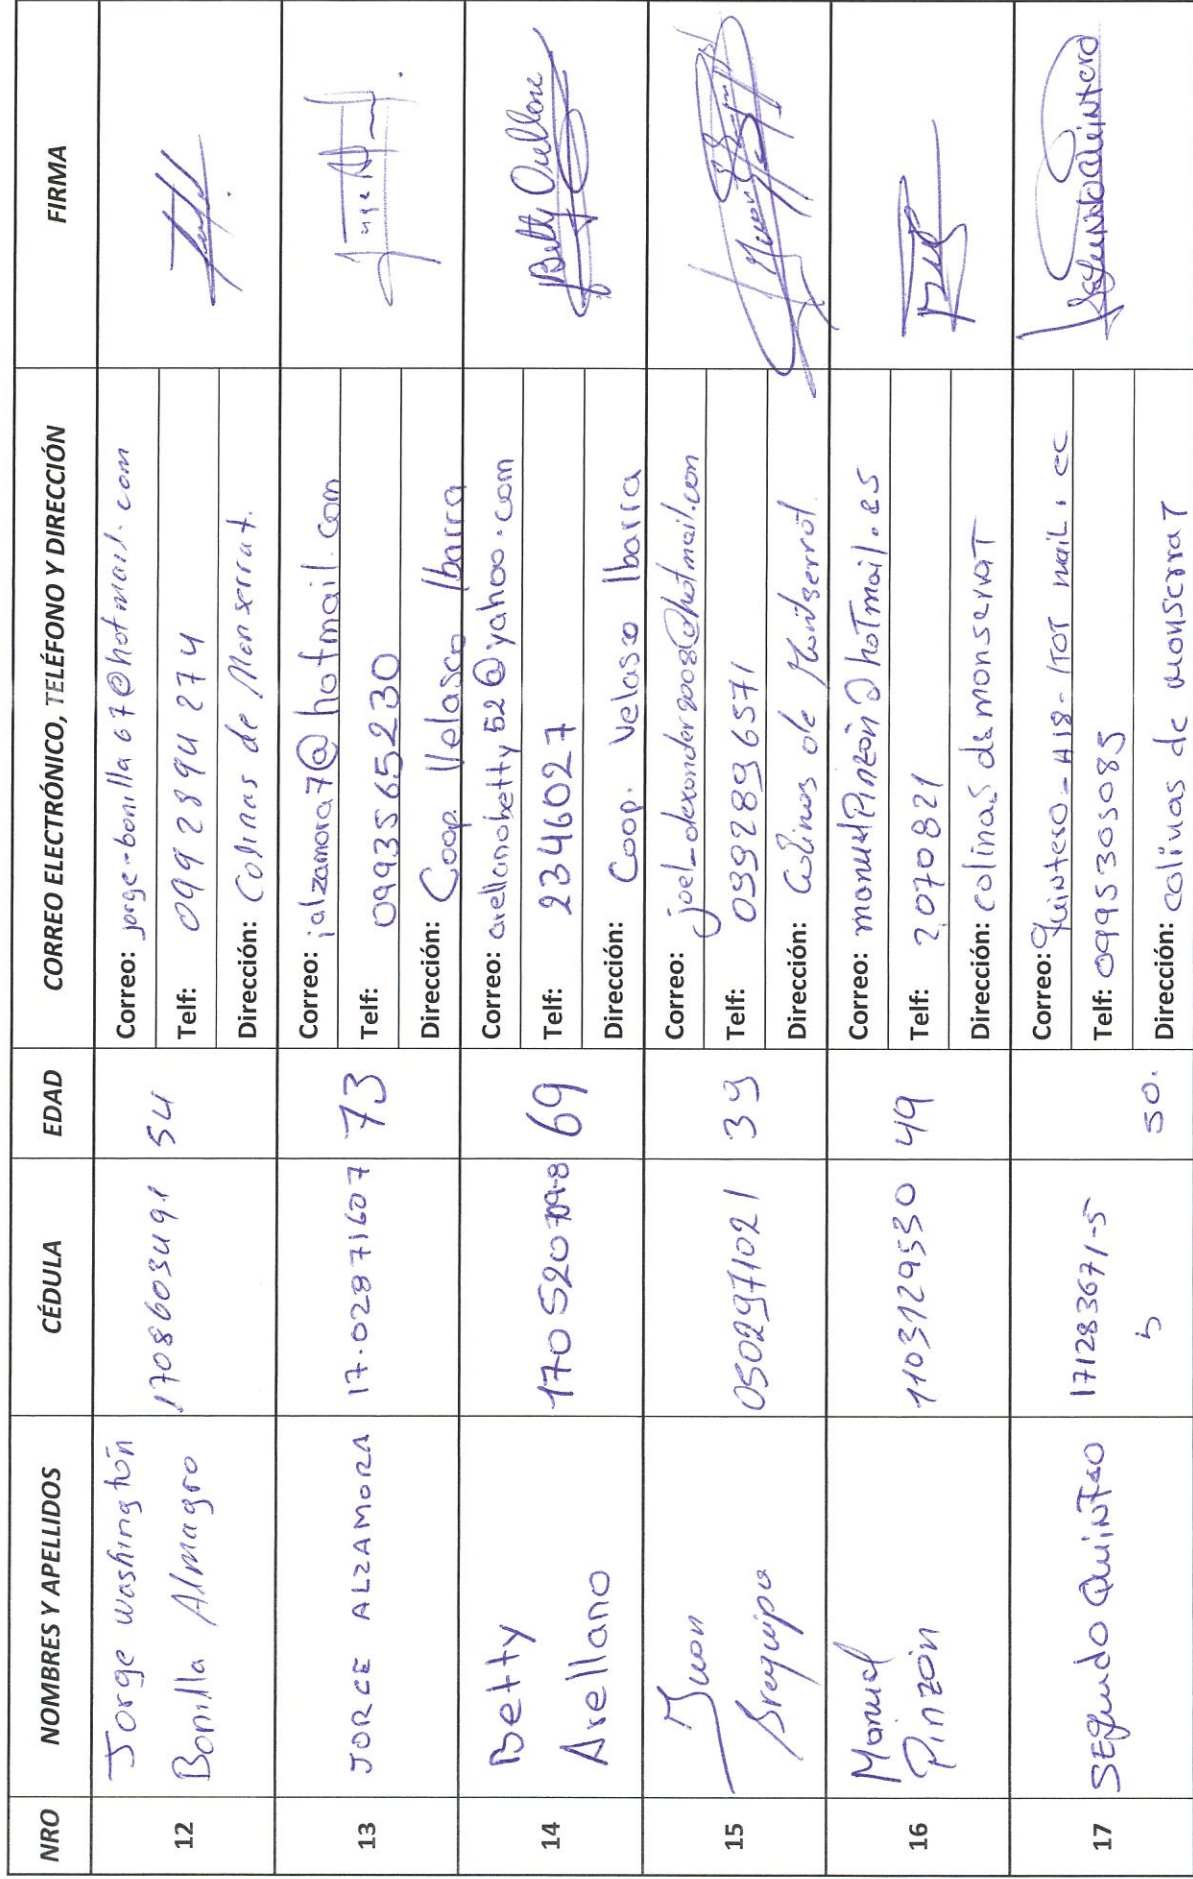 NRO NOMBRES Y APELLIDOS CÉDULA EDAD CORREO ELECTRÓNICO, TELÉFONO Y DIRECCIÓN FIRMA
12 Jorge Washington Bonilla Almagro 1708603491 54
Correo: jorge-bonilla67@hotmail.com
Telf: 0992894274
Dirección: Colinas de Monserrat.
13 JORGE ALZAMORA 17.02871607 73
Correo: jalzamora7@hotmail.com
Telf: 0993565230
Dirección: Coop. Velasco Ibarra
14 Betty Arellano 170520709-8 69
Correo: arellanobetty52@yahoo.com
Telf: 2346027
Dirección: Coop. Velasco Ibarra
Betty Arellano
15 Juan 0502971021 39
Correo: joel_alexander2008@hotmail.com
Telf: 0992896571
Dirección: Colinas de Montserrat.
16 Manuel Pinzón 1103129530 49
Correo: manuelPinzón@hotmail.es
Telf: 2070821
Dirección: colinas de monserrat
17 SEgundo Quintero 171283671-5 50.
5
Correo: Quintero_H18-
Telf: 0995305085
Dirección: colinas de monserrat
Segundo Quintero